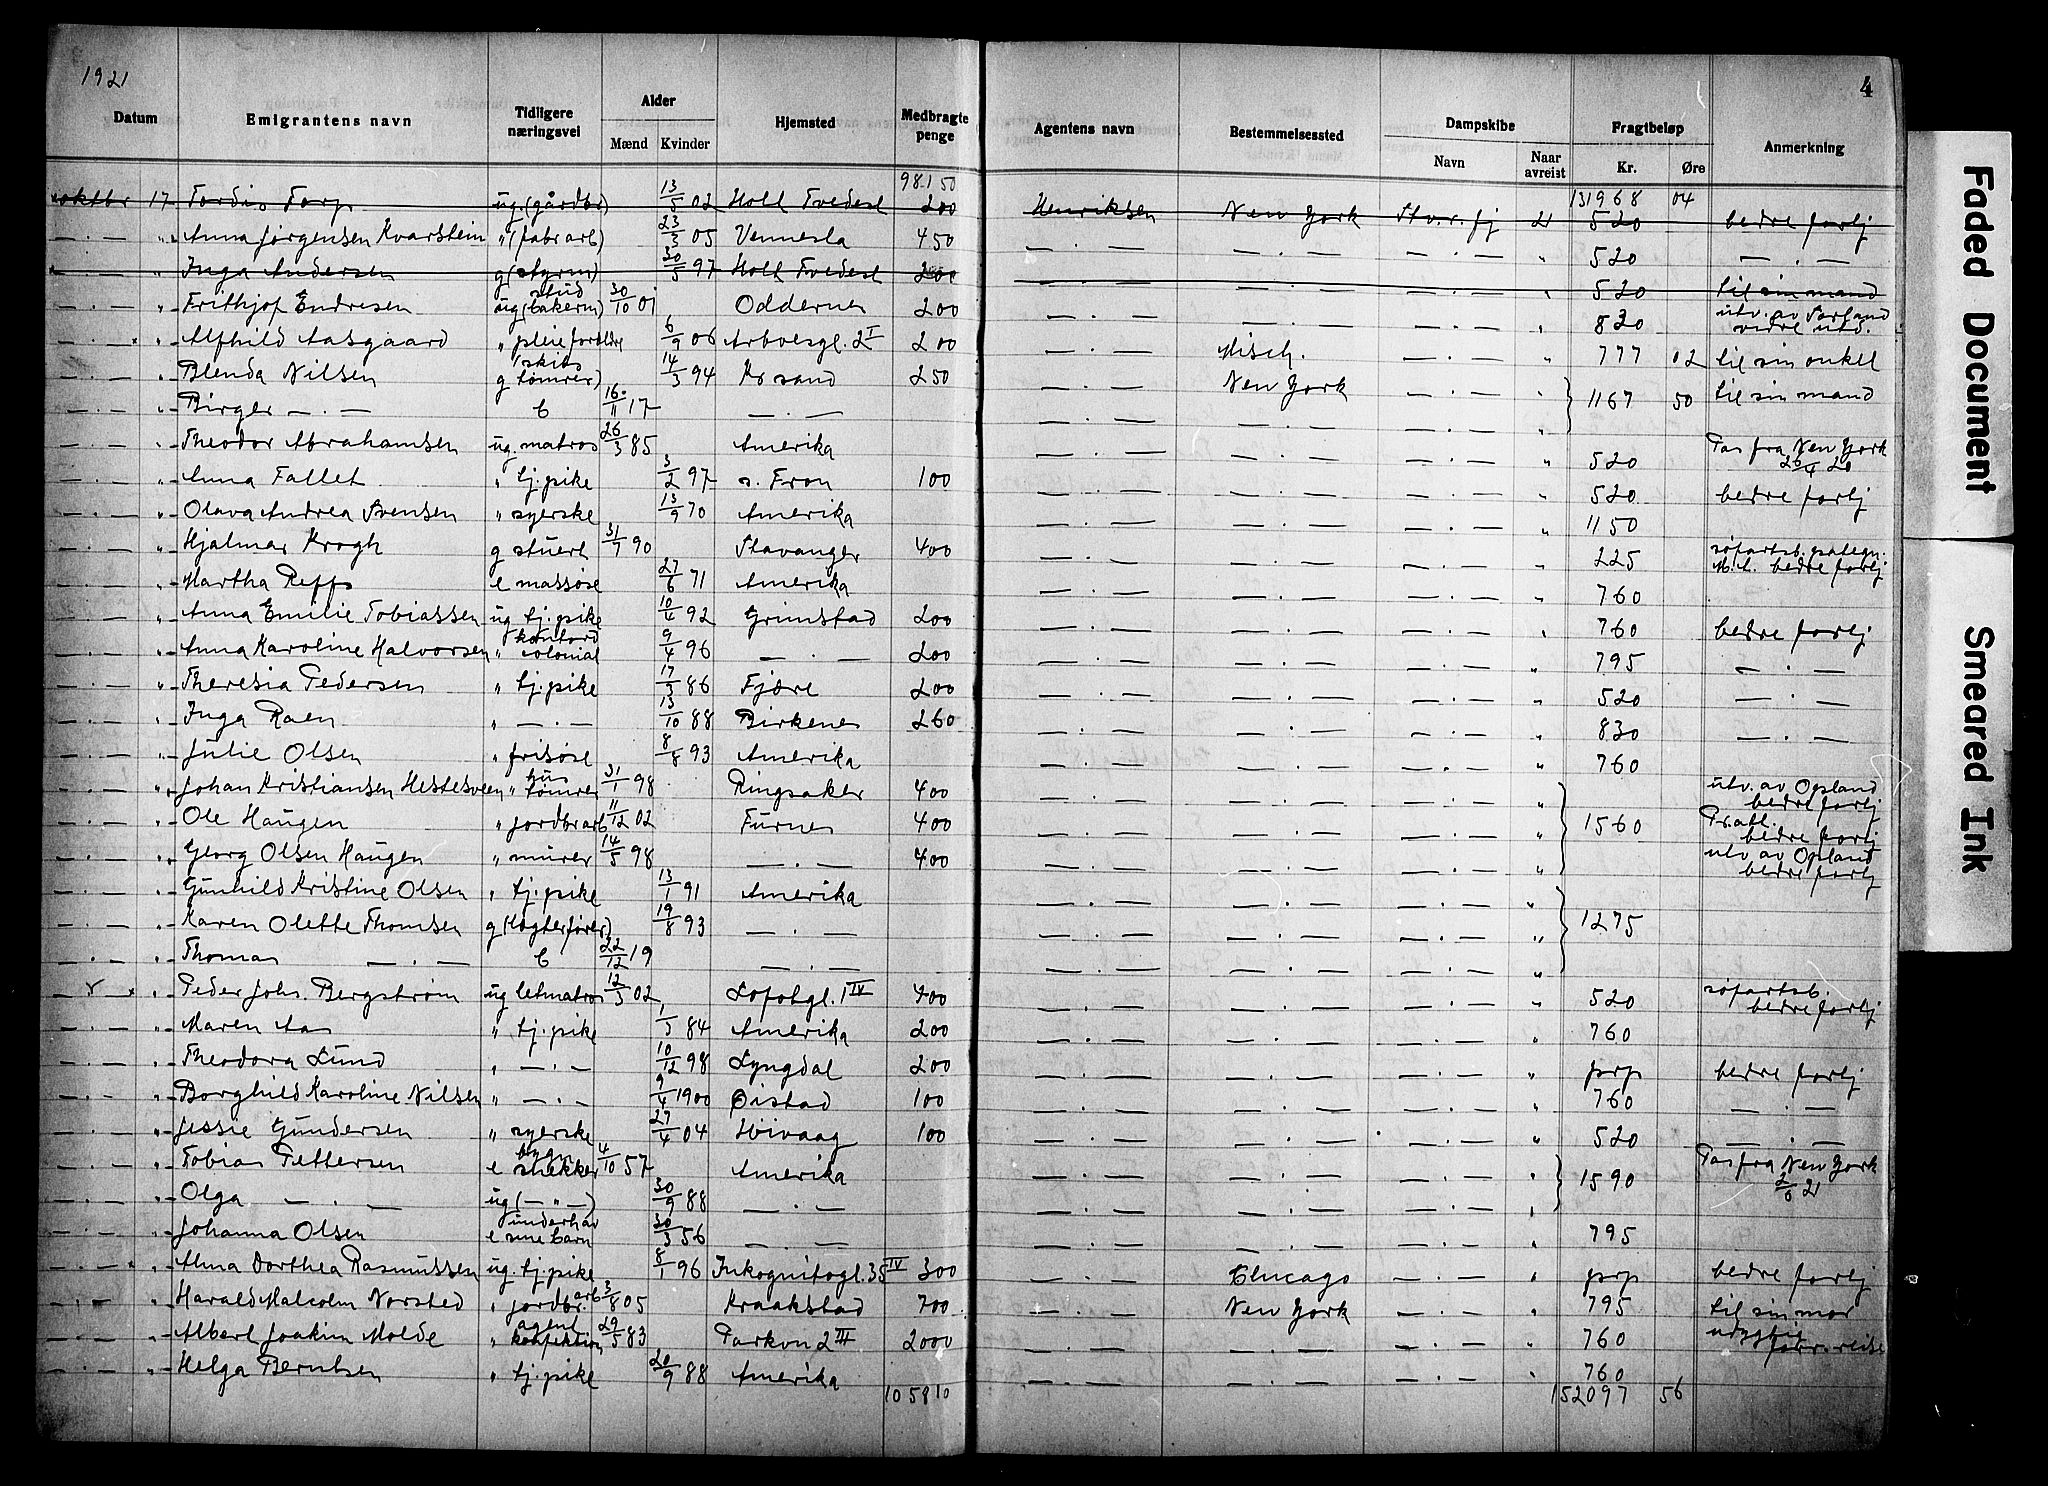 1921
4
Datum Emigrantens navn Tidligere næringsvei Alder Mænd Kvinder Hjemsted Medbragte penge Agentens navn Bestemmelsessted Dampskibe Navn Naar avreist Fragtbeløp Kr. Øre Anmerkning
98150 131968 04
oktbr 17 Tordis Torp ug. (gårdbr) 13/5 02 Holt Tvedest 200 Henriksen New York Stav.r.fj 21 520 bedre forlj
— . — " Anna Jørgensen Kvarstein " (fabr arb) 23/3 05 Vennesla 450 — . — — . — — . — " 520 — . —
— . — " Inga Andersen g (styrm) 30/5 97 Holt Tvedest 200 — . — — . — — . — " 520 til sin mand
— . — " Frithjof Endresen stud ug (bakerm) 30/10 01 Oddernes 200 — . — — . — — . — " 830 utv. av Sørland vidre utd.
— . — " Alfhild Aasgaard " pleieforeldre 6/9 06 Arboesgt. 2 I 200 — . — Misch. — . — " 777 02 til sin onkel
— . — " Blenda Nilsen g skibstømrer) 14/3 94 Krsand 250 — . — New York — . — " 1167 50 til sin mand
— . — " Birger — . — b 16/11 17 — . — — . — — . — — . — "
— . — " Theodor Abrahamsen ug. matros 26/3 85 Amerika — . — — . — — . — " 520 Pas fra New York 26/4 20
— . — " Anna Fallet " tj. pike 3/2 97 s. Fron 100 — . — — . — — . — " 520 bedre forlj
— . — " Olava Andrea Svensen " syerske 13/9 70 Amerika — . — — . — — . — " 1150
— . — " Hjalmar Krogh g stuert 31/7 90 Stavanger 400 — . — — . — — . — " 225 søfartsb. M.t. bedre forlj
— . — " Martha Repps e massøse 27/6 71 Amerika — . — — . — — . — " 760
— . — " Anna Emilie Tobiassen ug tj. pike 10/4 92 Grimstad 200 — . — — . — — . — " 760 bedre forlj
— . — " Anna Karoline Halvorsen " kontord colonial 9/4 96 — . — 200 — . — — . — — . — " 795 — . —
— . — " Theresia Pedersen " tj. pike 17/3 86 Fjære 200 — . — — . — — . — " 520 — . —
— . — " Inga Raen " — . — 13/10 88 Birkenes 260 — . — — . — — . — " 830 — . —
— . — " Julie Olsen " frisøse 8/8 93 Amerika — . — — . — — . — " 760
— . — " Johan Kristiansen Hestesveen " hustømrer 31/1 98 Ringsaker 400 — . — — . — — . — " utv. av Opland bedre forlj
— . — " Ole Haugen " jordbrarb 11/12 02 Furnes 400 — . — — . — — . — " 1560 Pr. att. bedre forlj
— . — " Georg Olsen Haugen " murer 14/5 98 — . — 400 — . — — . — — . — " utv av Opland bedre forlj
— . — " Gunhild Kristine Olsen " tj. pike 13/1 91 Amerika — . — — . — — . — "
— . — " Karen Olette Thomsen g (lægterfører) 19/8 93 — . — — . — — . — — . — " 1275
— . — " Thomas — . — b 22/12 19 — . — — . — — . — — . — "
— v — x " Peder Johs. Bergstrøm ug letmatros 12/3 02 Lofotgt. 1 IV 400 — . — — . — — . — " 520 søfartsb. bedre forlj
— . — " Maren Aas " tj. pike 1/3 84 Amerika 200 — . — — . — — . — " 760
— . — " Theodora Lund " — . — 10/12 98 Lyngdal 200 — . — — . — — . — " prp bedre forlj
— . — " Borghild Karoline Nilsen " — . — 9/4 1900 Øistad 100 — . — — . — — . — " 760 — . —
— . — " Jessie Gundersen " syerske 27/4 04 Høivaag 100 — . — — . — — . — " 520 — . —
— . — " Tobias Pettersen e bygn snekker 4/10 57 Amerika — . — — . — — . — " 1590 Pas fra New York 2/6 21
— . — " Olga — . — ug (— " —) 30/9 88 — . — — . — — . — — . — "
— . — " Johanna Olsen e underh av sine barn 30/3 56 — . — — . — — . — — . — " 795
— . — x " Alma Dorthea Rasmussen ug. tj. pike 8/1 96 Inkognitogt. 35 IV 300 — . — Chicago — . — " prp bedre forlj
— . — " Harald Malcolm Norsted " jordbr. arb 3/8 05 Kraakstad 700 — . — New York — . — " 795 til sin mor
— . — " Albert Joakim Molde " agent konfektion 29/5 83 Parkvn 2 III 2000 — . — — . — — . — " 760 forr.reise
— . — " Helga Berntsen " tj. pike 20/9 88 Amerika — . — — . — — . — " 760
105810 152097 56
Faded Document
Smeared Ink